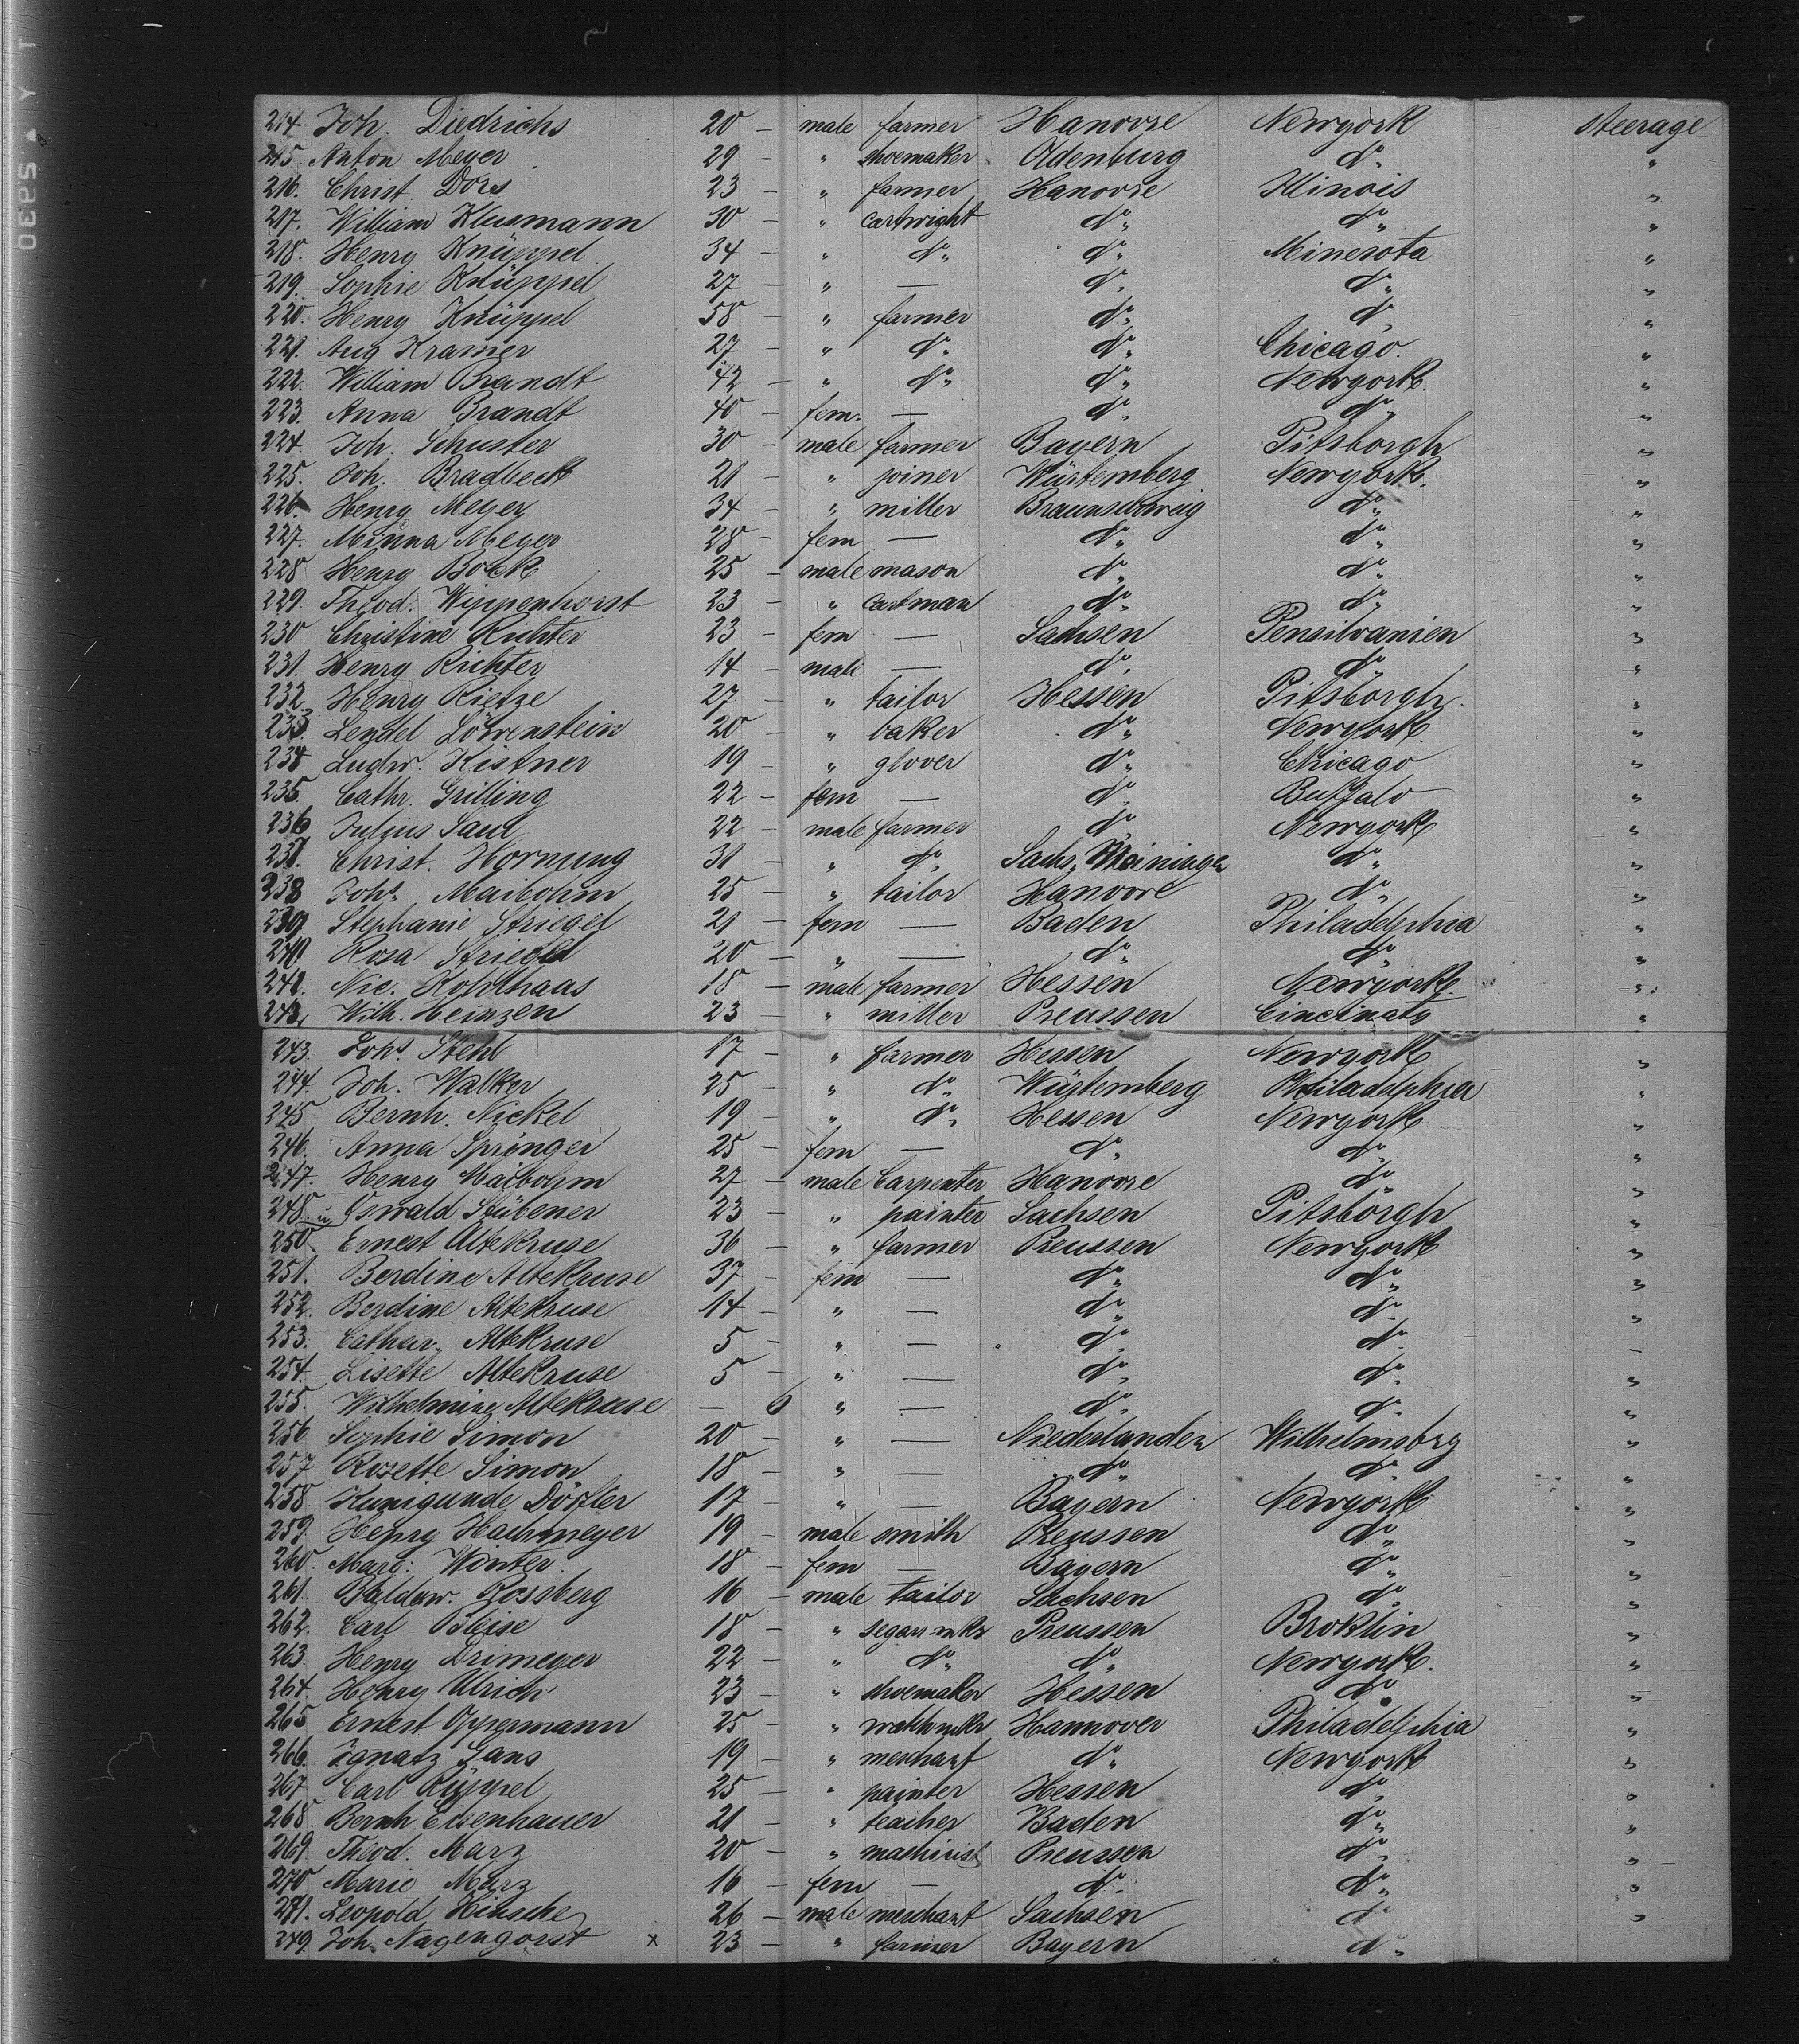 214. Joh. Diedrichs 20 – male farmer Hanovre Newyork steerage
215. Anton Meyer 29 – " shoemaker Oldenburg do. "
216. Christ. Dors 23 – " farmer Hanovre Illinois "
217. William Klusmann 30 – " cartwright do. do. "
218. Henry Knüppel 34 – " do. do. Minesota "
219. Sophie Knüppel 27 – " — do. do. "
220. Henry Knüppel 58 – " farmer do. do. "
221. Aug Kramer 27 – " do. do. Chicago. "
222. William Brandt 42 – " do. do. Newyork. "
223. Anna Brandt 40 – fem. — do. do. "
224. Joh. Schuster 30 – male farmer Bayern Pitsborgh "
225. Joh. Bradbeck 21 – " joiner Würtemberg Newyork. "
226. Henry Meyer 34 – " miller Braunschweig do. "
227. Minna Meyer 28 – fem — do. do. "
228 Henry Bock 25 – male mason do. do. "
229. Theod. Wippenhorst 23 – " cartman do. do. "
230 Christine Richter 23 – fem — Sachsen Pensilvanien "
231. Henry Richter 14 – male — do. do. "
232. Henry Rietze 27 – " tailor Hessen Pitsborgh. "
233. Lendel Löwenstein 20 – " baker do. Newyork. "
234 Ludw. Kistner 19 – " glover do. Chicago "
235. Cathr. Grilling 22 – fem — do. Buffalo "
236 Julius Saul 22 – male farmer do. Newyork "
237. Christ. Hornung 31 – " do. Sachs. Meiningen do. "
238 Johs. Maibohm 25 – " tailor Hanovre do. "
239 Stephanie Striegel 21 – fem — Baden Philadelphia "
240 Rosa Striegel 20 – " — do. do. "
241. Nic. Kohlhaas 18 – male farmer Hessen Newyork. "
242. Wilh. Heinzen 23 – " miller Preussen Cincinaty "
243. Johs. Stehl 17 – " farmer Hessen Newyork "
244. Joh. Walker 25 – " do. Würtemberg Philadelphia "
245 Bernh. Nickel 19 – " do. Hessen Newyork "
246. Anna Springer 25 – fem — do. do. "
247. Henry Maibohm 27 – male Carpenter Hanovre do. "
248. Oswald Stübener 23 – " painter Sachsen Pitsborgh "
250. Ernest Altekruse 36 – " farmer Preussen Newyork "
251. Berdine Altekruse 37 – fem — do. do. "
252. Berdine Altekruse 14 – " — do. do. "
253. Cathar. Altekruse 5 – " — do. do. "
254. Lisette Altekruse 5 – " — do. do. "
255. Wilhelmine Altekruse — 6 " — do. do. "
256 Sophie Simon 20 – " — Niederlanden Wilhelmsbrg "
257 Rosette Simon 18 – " — do. do. "
258 Kunigunde Dörfler 17 – " — Bayern Newyork "
259. Henry Hachmeyer 19 – male smith Preussen do. "
260. Marg: Winter 18 – fem — Bayern do. "
261. Baldew. Rossberg 16 – male tailor Sachsen do. "
262. Carl Bleise 18 – " segarr-mkr Preussen Broklin "
263. Henry Drimeyer 22 – " do. do. Newyork. "
264. Henry Ulrich 23 – " shoemaker Hessen do. "
265 Ernest Oppermann 25 – " watchmkr Hannover Philadelphia "
266. Ignatz Gans 19 – " merchant do. Newyork "
267 Carl Rüppel 25 – " painter Hessen do. "
268. Bernh. Eisenhauer 21 – " teacher Baden do. "
269. Theod. Marz 20 – " machinist Preussen do. "
270 Marie Marz 16 – fem — do. do. "
271. Leopold Hinsche 26 – male merchant Sachsen do. "
349. Joh. Nagengorst x 23 – " farmer Bayern do.